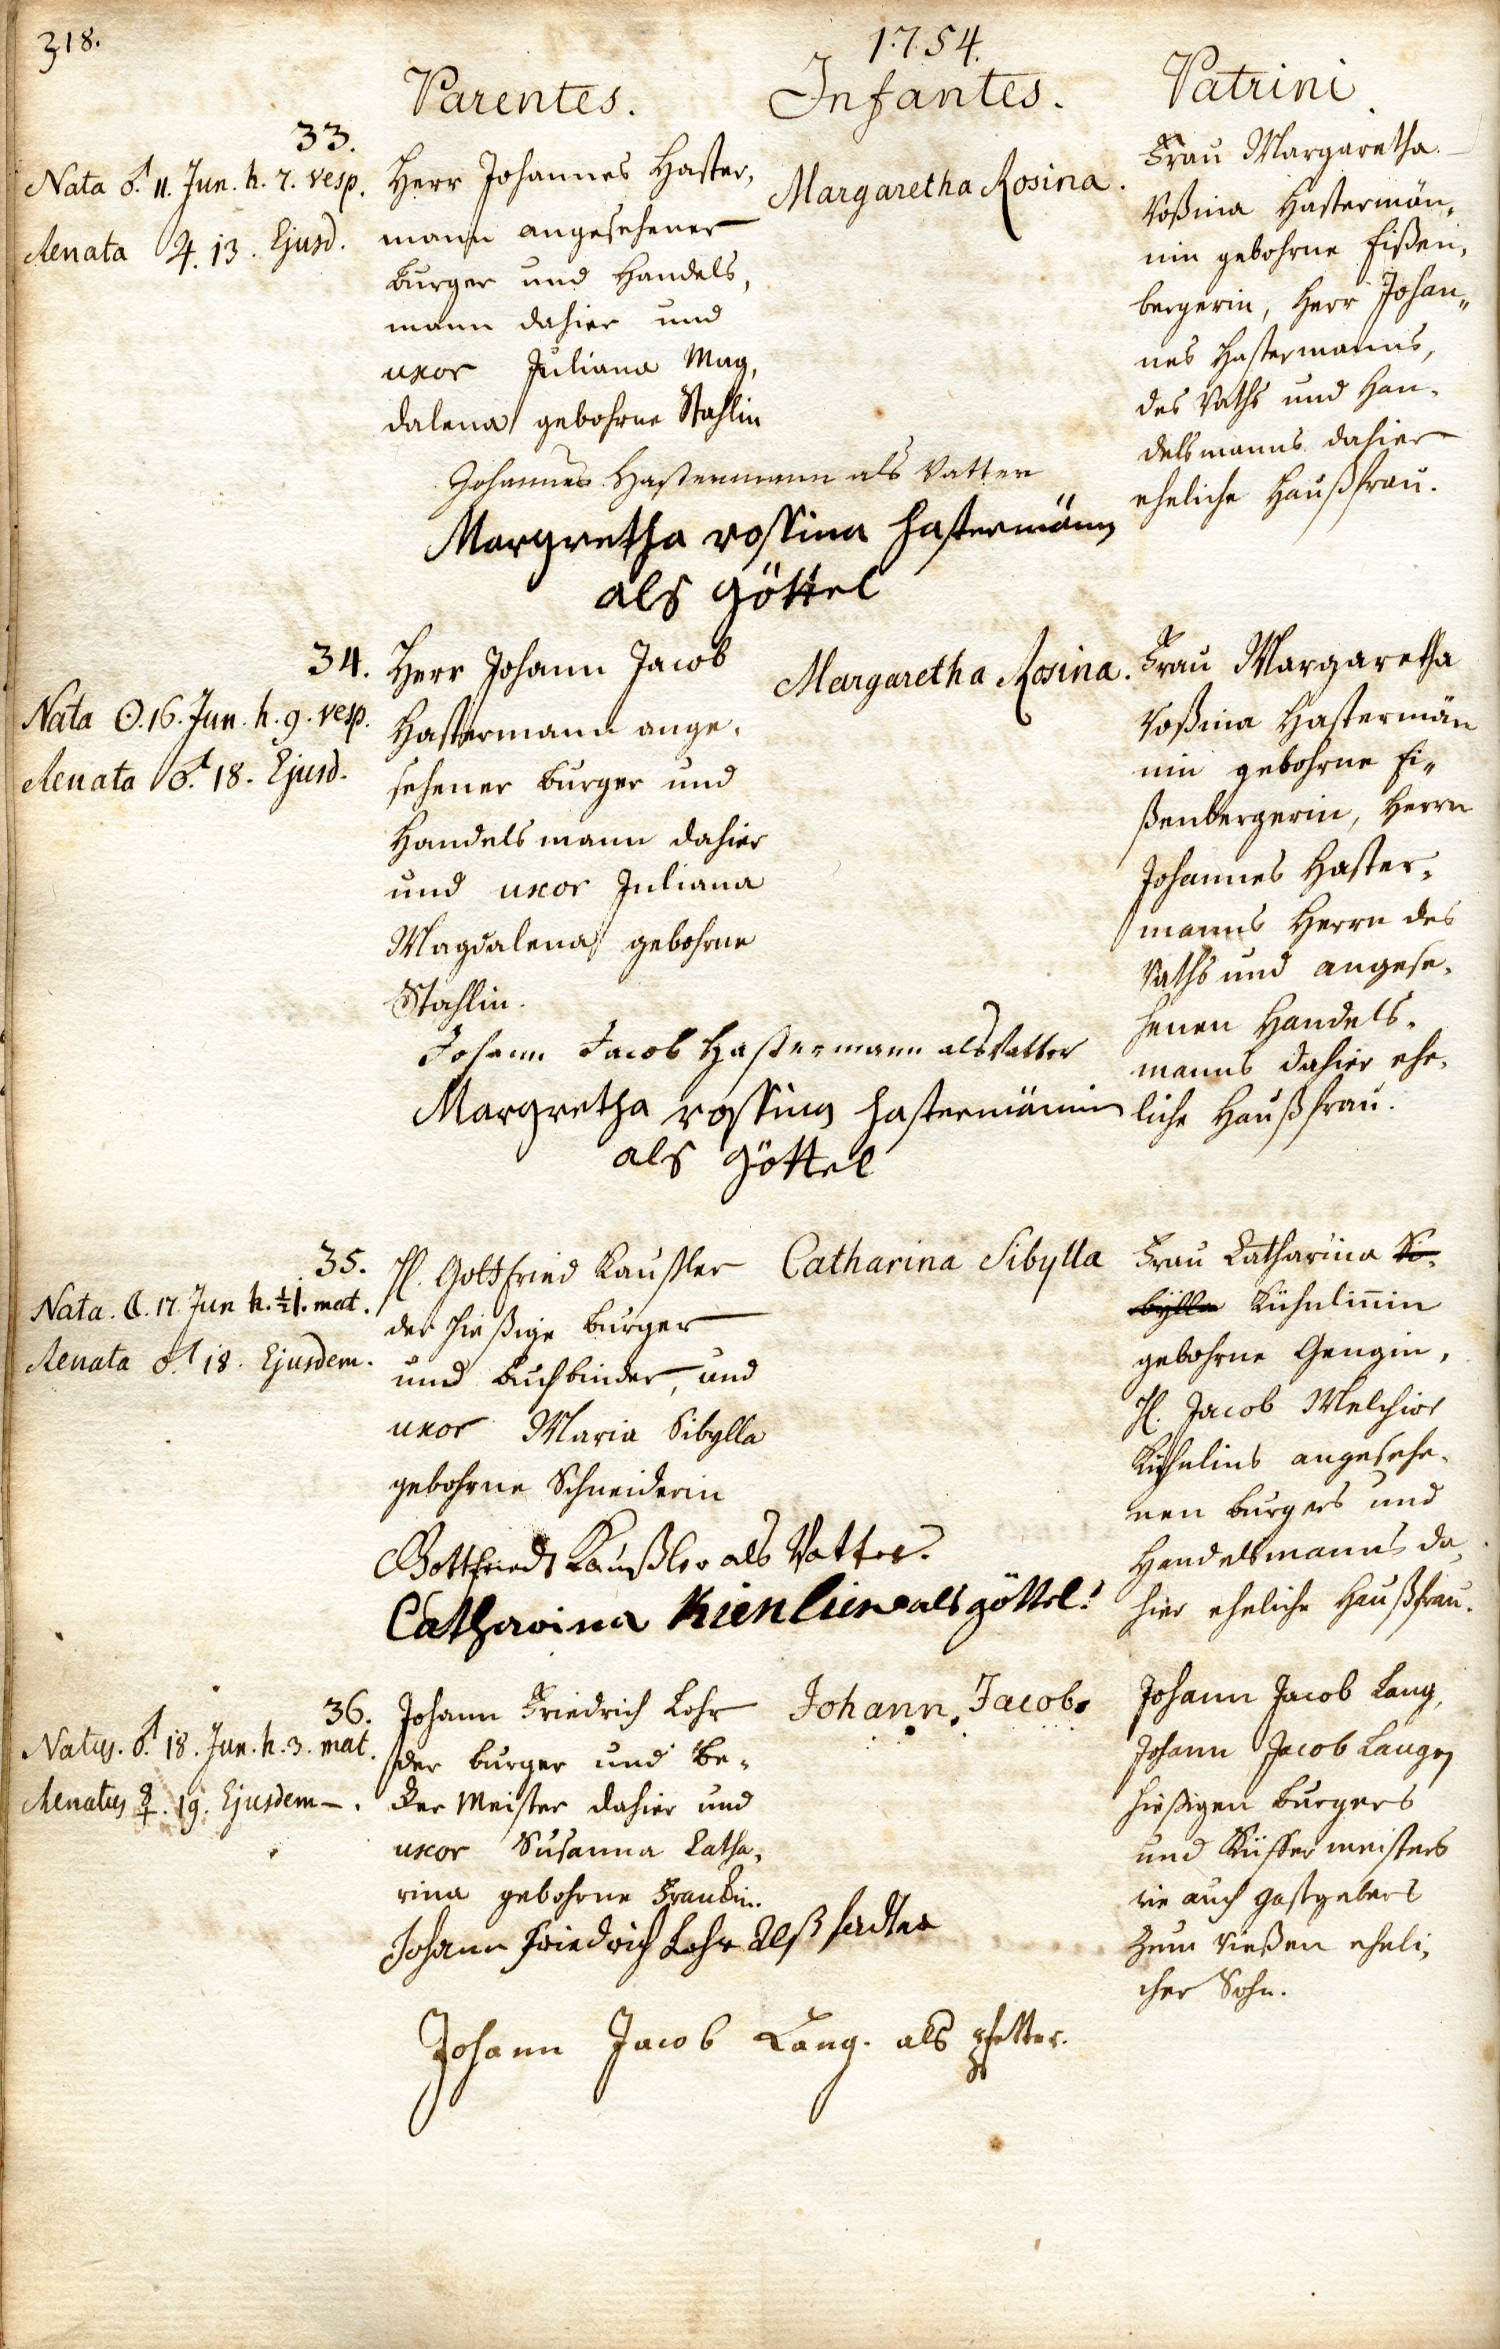 318.
1754.
Parentes. Infantes. Patrini
33.
Nata ♂. 11. Jun. h. 7. vesp.
Renata ♃. 13. Ejusd.
Herr Johannes Haster,
mann angesehener
burger und Handels,
mann dahier und
uxor Juliana Mag,
dalena gebohrne Stahlin
Margaretha Rosina.
Frau Margaretha
Roßina Hastermän,
nin gebohrne Eißen,
bergerin, Herr Johan„
nes Hastermanns,
des Raths und Han,
delsmanns dahier
eheliche Haußfrau.
Johannes Hastermann als Vatter
Margretha rossina hastermänn
als göttel
34.
Nata ☉. 16. Jun. h. 9. vesp.
Renata ♂. 18. Ejusd.
Herr Johann Jacob
Hastermann ange,
sehener burger und
Handelsmann dahier
und uxor Juliana
Magdalena gebohrne
Stahlin.
Margaretha Rosina.
Frau Margaretha
Roßina Hastermän
nin gebohrne Ei„
ßenbergerin, Herrn
Johannes Haster,
manns Herrn des
Raths und angese,
henen Handels,
manns dahier ehe,
liche Haußfrau.
Johann Jacob Hastermann als Vatter
Margretha rossina hastermänin
als göttel
35.
Nata. ☾. 17. Jun h. ½1. mat.
Renata ♂. 18. Ejusdem.
H. Gottfried Kaußler
der hießige burger
und buchbinder, und
uxor Maria Sibylla
gebohrne Schneiderin
Catharina Sibylla
Frau Catharina Si,
bylla Kühnlinin
gebohrne Gengin,
H. Jacob Melchior
Kühnlins angesehe,
nen burgers und
Handelsmanns da,
hier eheliche Haußfrau.
Gottfried Kaußler als Vatter.
Catharina Kienlin als göttel.
36.
Natus. ♂. 18. Jun. h. 3. mat.
Renatus ☿. 19. Ejusdem.
Johann Friedrich Lohr
der burger und Be,
cker Meister dahier und
uxor Susanna Catha,
rina gebohrne Franckin.
Johann Jacob.
Johann Jacob Lang,
Johann Jacob Langen
hießigen burgers
und Küffermeisters
wie auch gastgebers
zum rießen eheli,
cher Sohn.
Johann friedrich Lohr Alß fadter
Johann Jacob Lang. als pfetter.